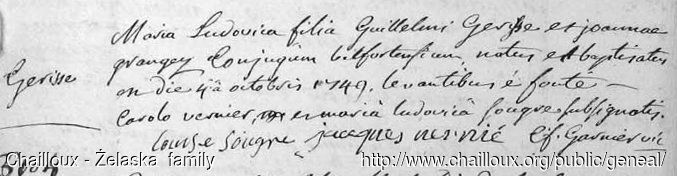 Maria Ludovica filia Guillelmi Gerisse et joannae
Gerisse
grangey conjugum belfortensium, natus et baptisatus
die 4â octobris 1749. levantibus é fonté
Carolo vernier, et mariâ ludovicâ Sougre subsignatis.
Louise Sougre jacques vernié C.f. Garnier vic
Chailloux - Żelaska family
http://www.chailloux.org/public/geneal/